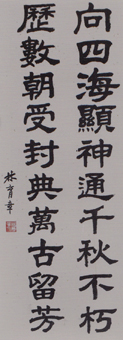 向四海顯神通千秋不朽
歷數朝受封典萬古留芳
林育幸